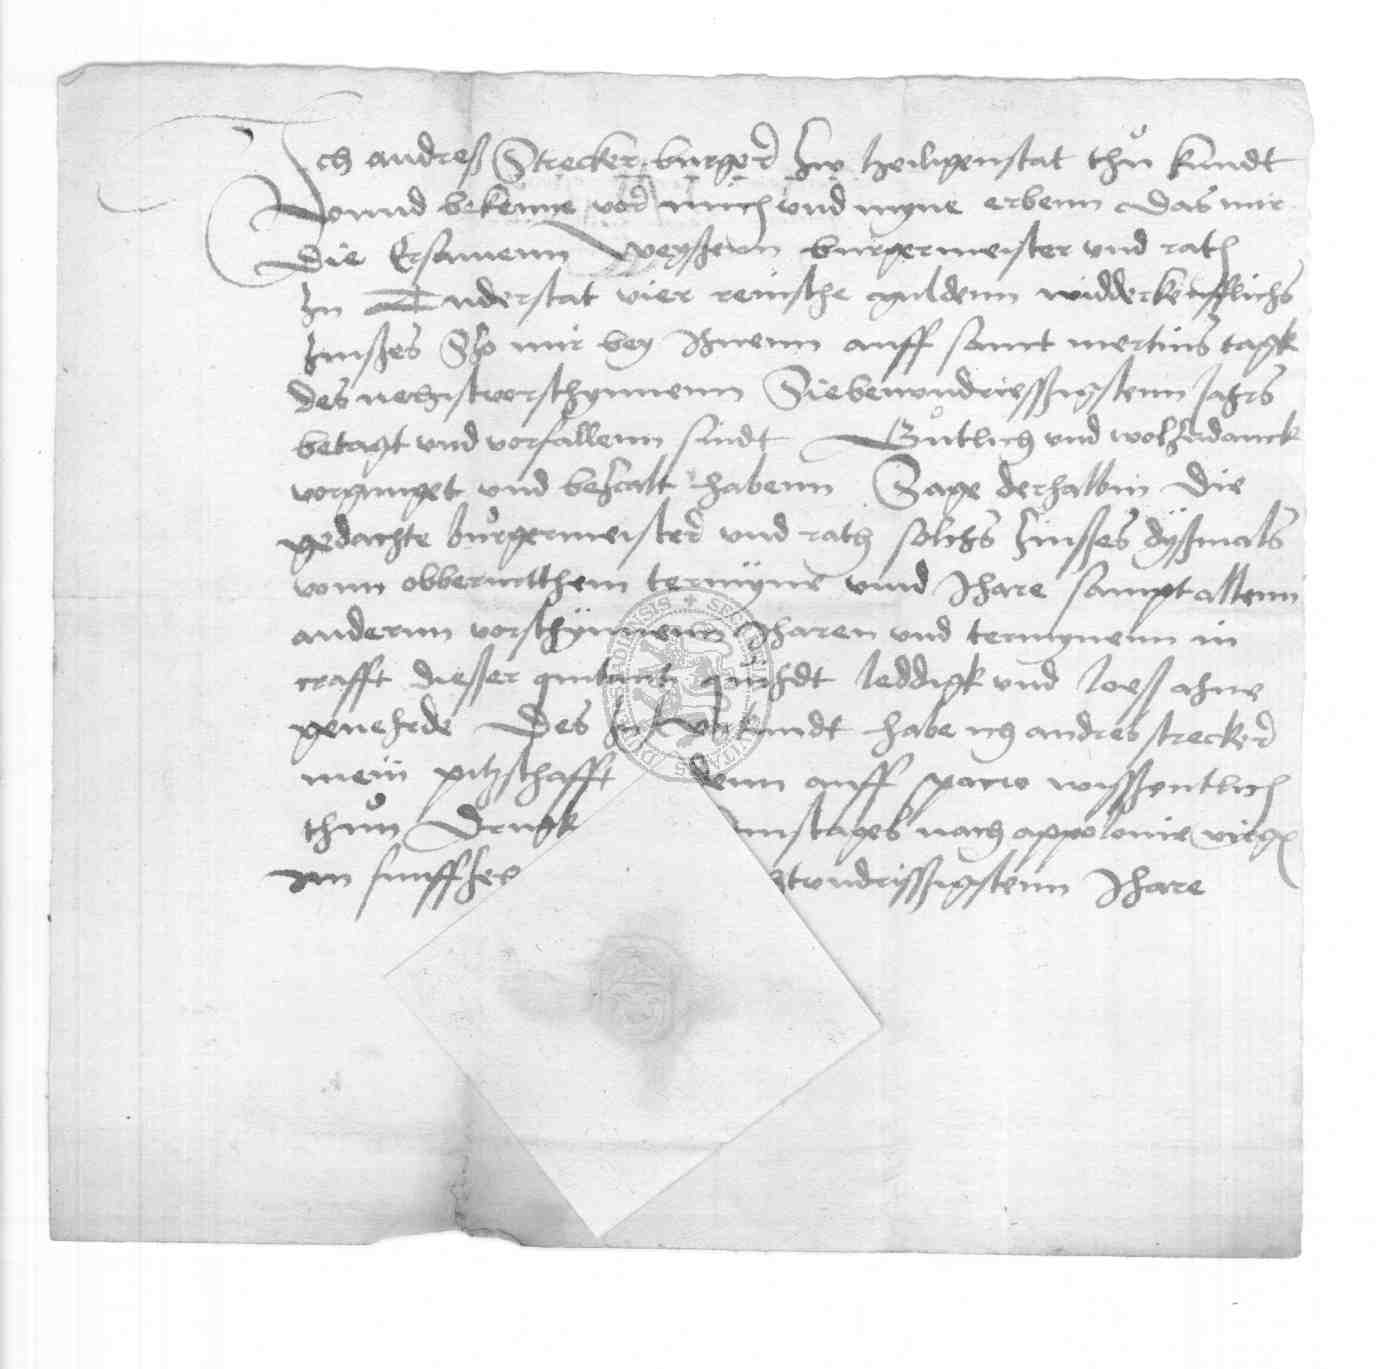 Ich andreß Strecker burger zw heiligenstat thun kundt
Vonnd bekenne vor mich und myne erbenn das mir
die Ersamenn weyßenn burgermeister und rath
zu Duderstat vier reinsche guldenn widderkeufflichs
zinßes Szo mir bey Ihnenn auff sanct mertins tagk
des nehistvorschynnenn Siebenundriessigstenn Jahrs
betagt und vorfallenn sindt Gutlich und wolzudanck
vorgnuget und bezcalt habenn Sage derhalbin die
gedachte burgermeister und rath solchs zinßes dyßmals
vonn obberurtthem termyne unnd Jhare sampt allenn
andernn vorschynnenn Jharen und termynenn in
crafft diesser quitantz quihdt leddigk und loeß ahne
geuehrde Des zu Urkundt habe ich andres strecker
mein pitzschafft denn auff spacio wissentlich
thun Drugk nstages nach appolonie virg
im funffze undrissigstenn Jhare